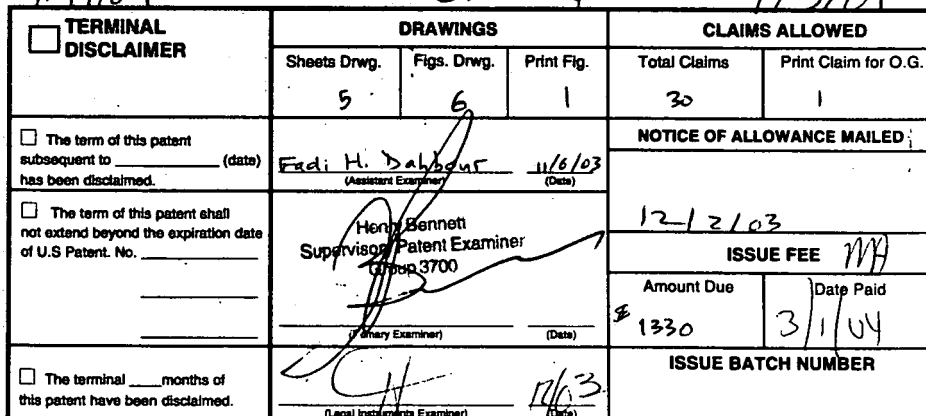 TERMINAL
DISCLAIMER
DRAWINGS
CLAIMS ALLOWED
Sheets Drwg.
Figs. Drwg.
Print Fig.
Total Claims
Print Claim for O.G.
5
6
1
30
1
The term of this patent
subsequent to ________ (date)
has been disclaimed.
Fadi H. Dahbour 11/6/03
(Assistant Examiner) (Date)
NOTICE OF ALLOWANCE MAILED
12/2/03
The term of this patent shall
not extend beyond the expiration date
of U.S Patent. No. ________
Henry Bennett
Supervisory Patent Examiner
Group 3700
(Primary Examiner) (Date)
ISSUE FEE
Amount Due
Date Paid
$ 1330
3/1/04
ISSUE BATCH NUMBER
The terminal ____months of
this patent have been disclaimed.
12/03
(Legal Instruments Examiner) (Date)